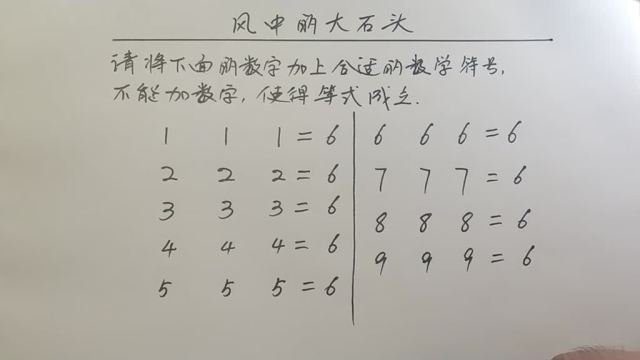 风中的大石头
请将下面的数字加上合适的数学符号,
不能加数字,使得等式成立.
1 1 1 = 6
2 2 2 = 6
3 3 3 = 6
4 4 4 = 6
5 5 5 = 6
6 6 6 = 6
7 7 7 = 6
8 8 8 = 6
9 9 9 = 6